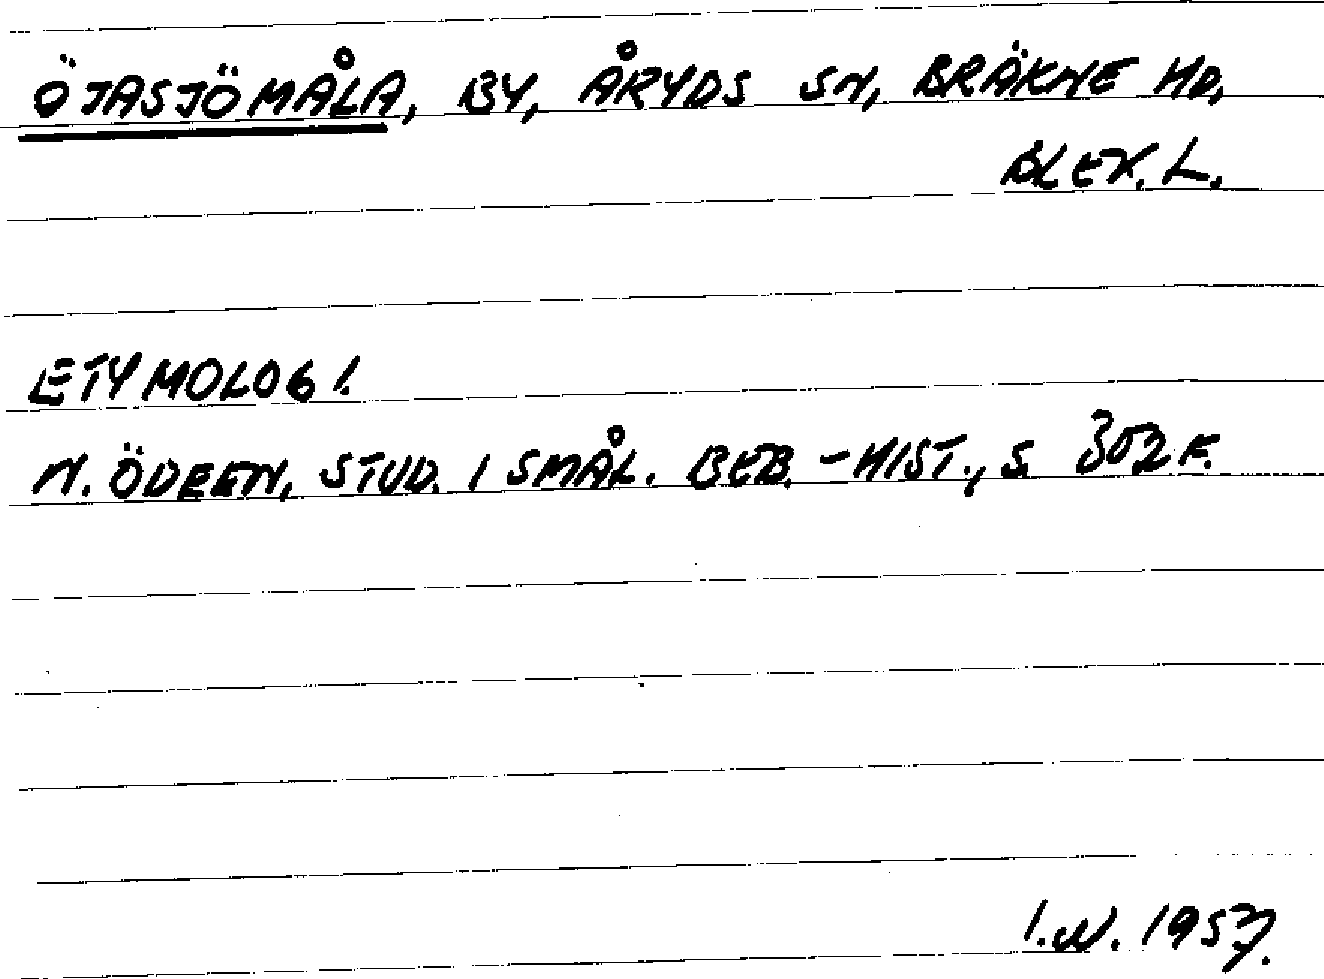 ÖJASJÖMÅLA, BY, ÅRYDS SN, BRÄKNE HD,
BLEK. L.
ETYMOLOGI.
N. ÖDEEN, STUD. I SMÅL. BEB.-HIST., S. 302 F.
I.N. 1957.